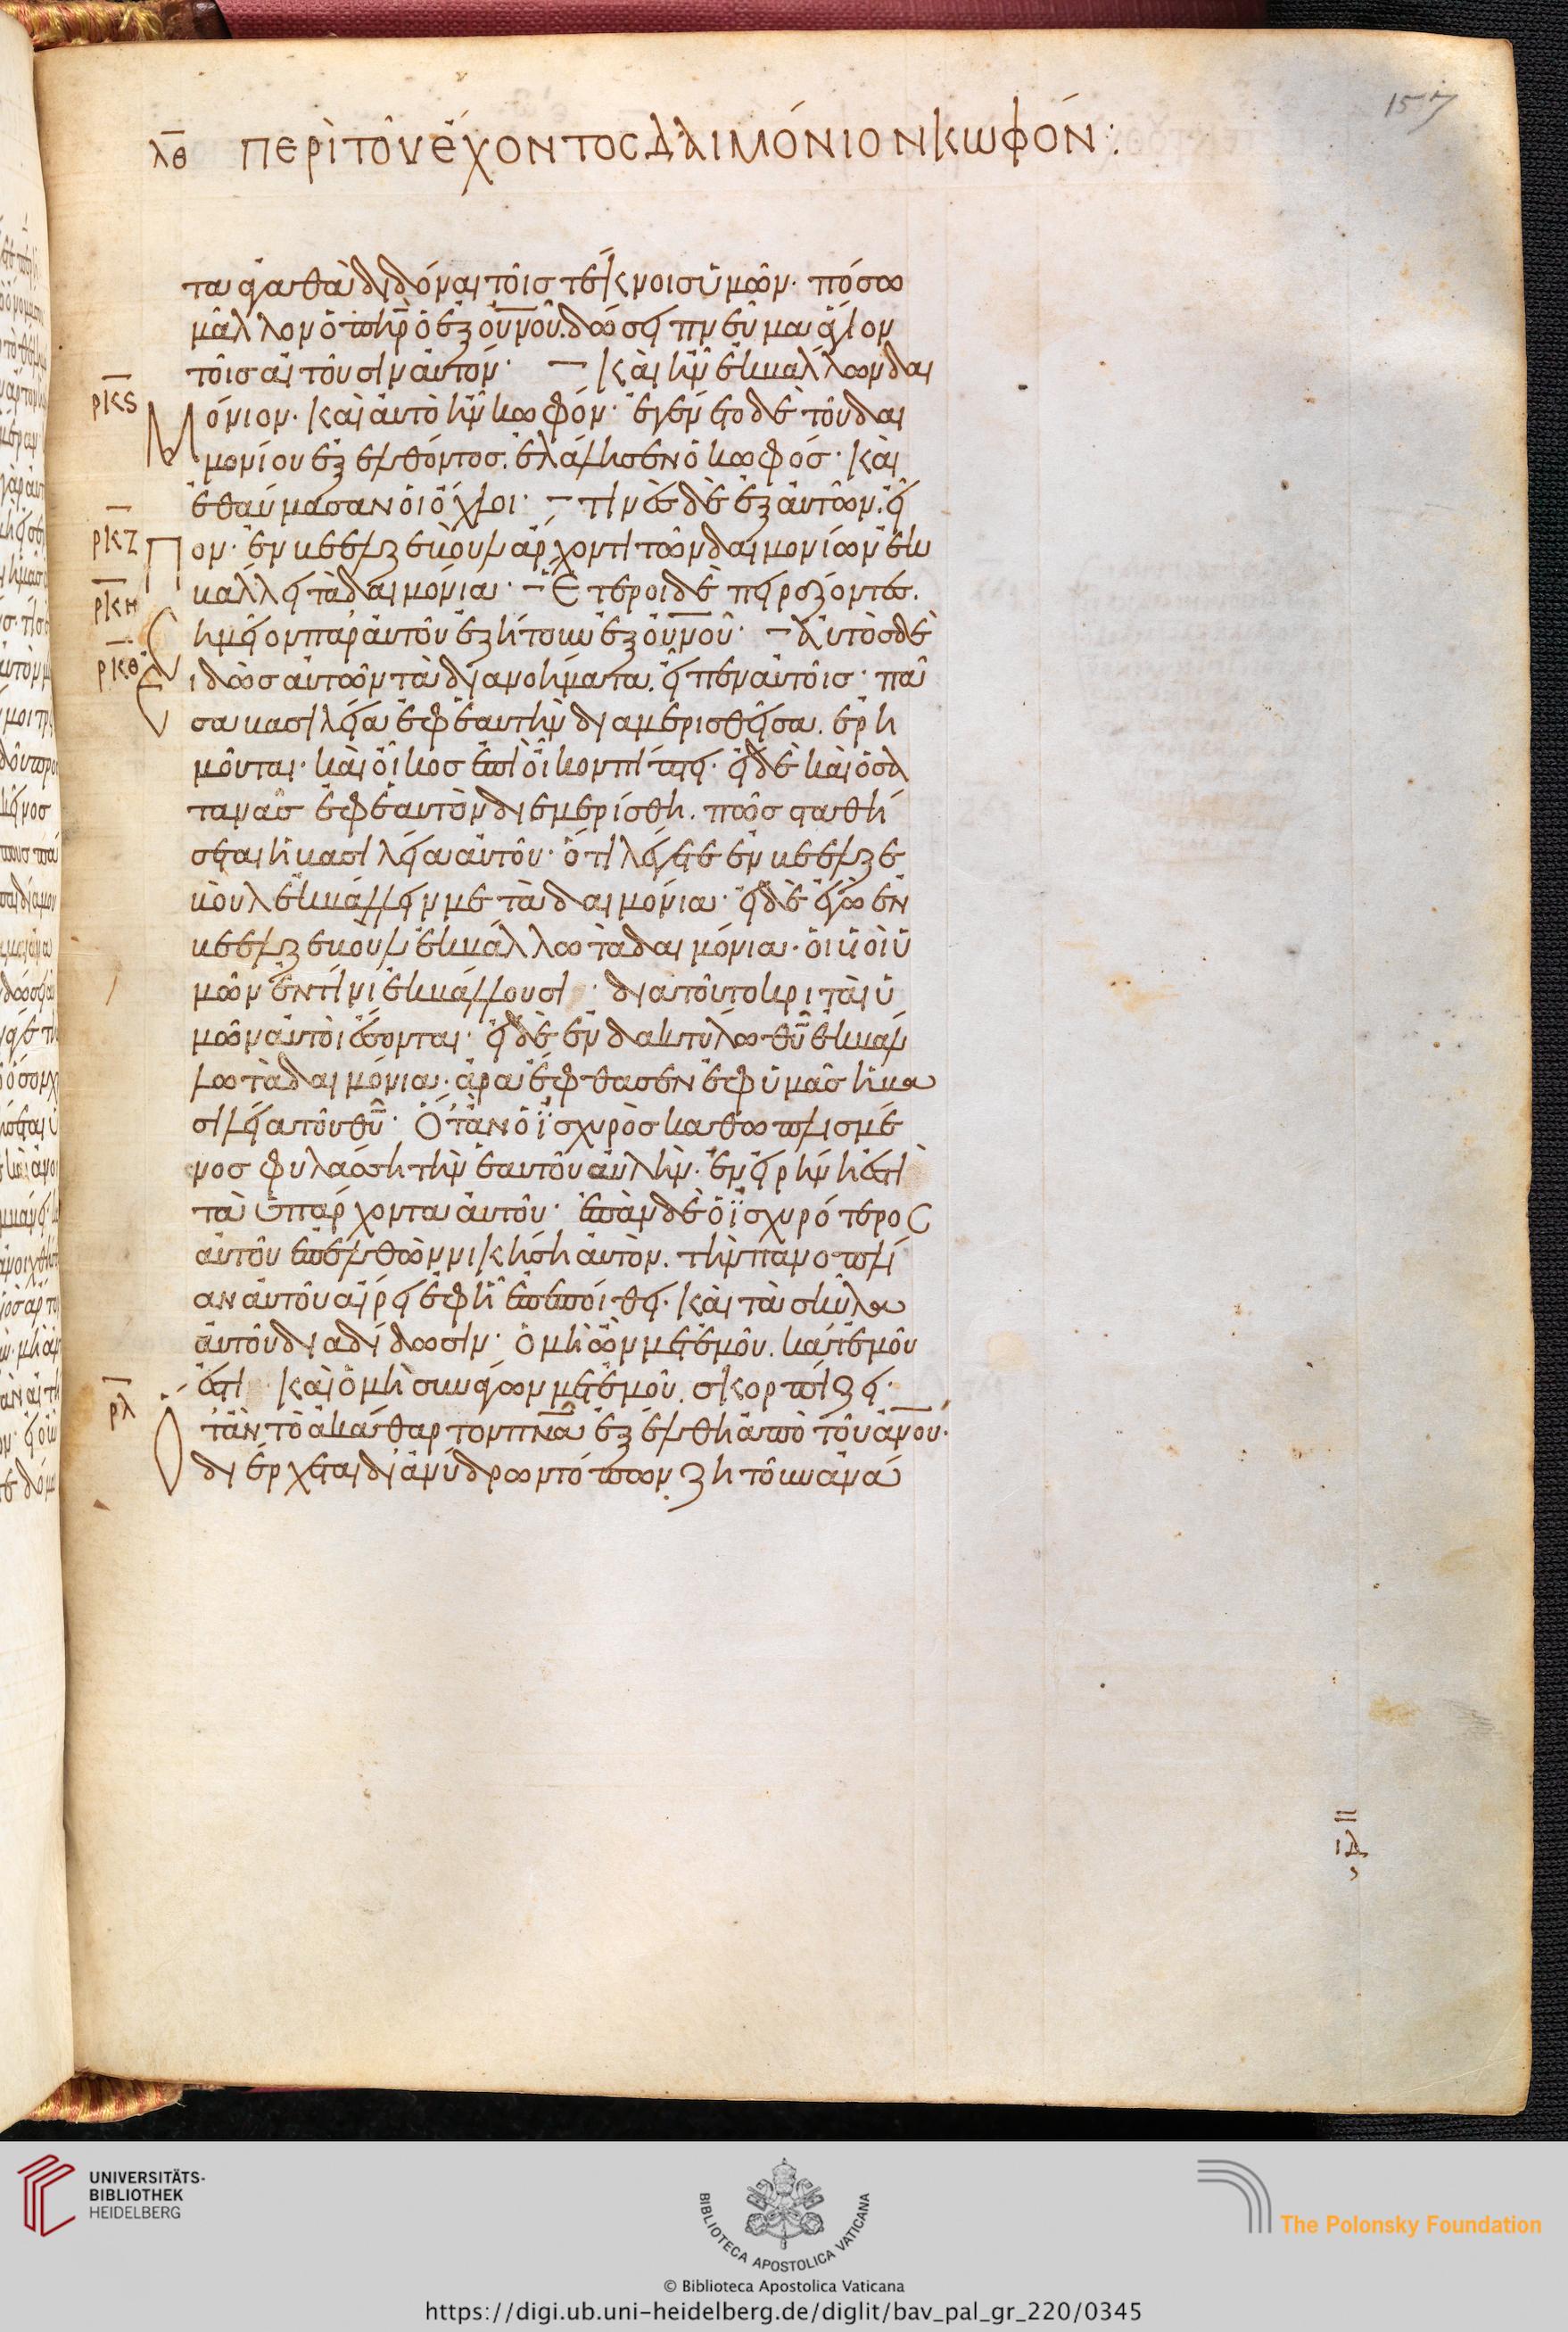 157
λθ περὶ τοῦ ἔχοντος δαιμόνιον κωφόν:
τα ἀγαθὰ διδόναι τοῖς τέκνοις ὑμῶν· πόσω
μᾶλλον ὁ πηρ ὁ ἐξ ουνου. δώσει πνεῦμα ἅγιον
τοῖς αἰτοῦσιν αὐτόν· – Καὶ ἦν ἐκβάλλων δαι
ρκς μόνιον. καὶ αὐτὸ ἦν κωφόν· ἐγένετο δὲ τοῦ δαι
μονίου ἐξελθόντος. ἐλάλησεν ὁ κωφός· καὶ
ἐθαύμασαν οἱ ὄχλοι· – τινὲς δὲ ἐξ αὐτῶν. εἶ
ρκζ πον· ἐν βεελζεβοὺλ ἄρχοντι τῶν δαιμονίων ἐκ
ρκη βάλλει τὰ δαιμόνια· – Ἕτεροι δὲ πειράζοντες.
σημεῖον παρ αὐτοῦ ἐζήτουν ἐξ ουνου· – Αὐτὸς δὲ
ρκθ εἰδὼς αὐτῶν τὰ διανοήματα. εἶπεν αὐτοῖς· πᾶ
σα βασιλεία ἐφ ἑαυτὴν διαμερισθεῖσα. ἐρη
μοῦται· καὶ οἶκος ἐπὶ οἶκον πίπτει· εἰ δὲ καὶ ὁ σα
τανᾶς ἐφ ἑαυτὸν διεμερίσθη. πῶς σταθή
σεται ἡ βασιλεία αὐτοῦ· ὅτι λέγετε ἐν βεελζε
βοὺλ ἐκβάλλειν με τὰ δαιμόνια· εἰ δὲ ἐγὼ ἐν
βεελζεβοὺλ ἐκβάλλω τὰ δαιμόνια· οἱ υἱοὶ ὑ
μῶν ἐν τίνι ἐκβάλλουσι· διατοῦτο κριταὶ ὑ
μῶν αὐτοὶ ἔσονται· εἰ δὲ ἐν δακτύλω θυ ἐκβάλ
λω τὰ δαιμόνια· ἄρα ἔφθασεν ἐφ ὑμᾶς ἡ βα
σιλεία τοῦ θυ· Ὅταν ὁ ϊσχυρὸς καθωπλισμέ
νος φυλάσση τὴν ἑαυτοῦ αὐλὴν· ἐν εἰρήνη ἐστὶ
τὰ ὑπάρχοντα αὐτοῦ· ἐπὰν δὲ ὁ ϊσχυρότερος
αὐτοῦ ἐπελθὼν νικήση αὐτὸν. τὴν πανοπλί
αν αὐτοῦ αἴρει ἐφ ἧ ἐπεποίθει· καὶ τὰ σκῦλα
αὐτοῦ διαδίδωσιν· ὁ μὴ ὢν μετ ἐμοῦ. κατ ἐμοῦ
ἐστι· καὶ ὁ μὴ συνάγων μετ ἐμοῦ. σκορπίζει·
ρλ Ὅταν τὸ ἀκάθαρτον πνα ἐξέλθη ἀπὸ τοῦ ανου·
διέρχεται δι ἀνύδρων τόπων ζητοῦν ἀνά
ιδ
UNIVERSITÄTS-
BIBLIOTHEK
HEIDELBERG
BIBLIOTECA APOSTOLICA VATICANA
The Polonsky Foundation
© Biblioteca Apostolica Vaticana
https://digi.ub.uni-heidelberg.de/diglit/bav_pal_gr_220/0345